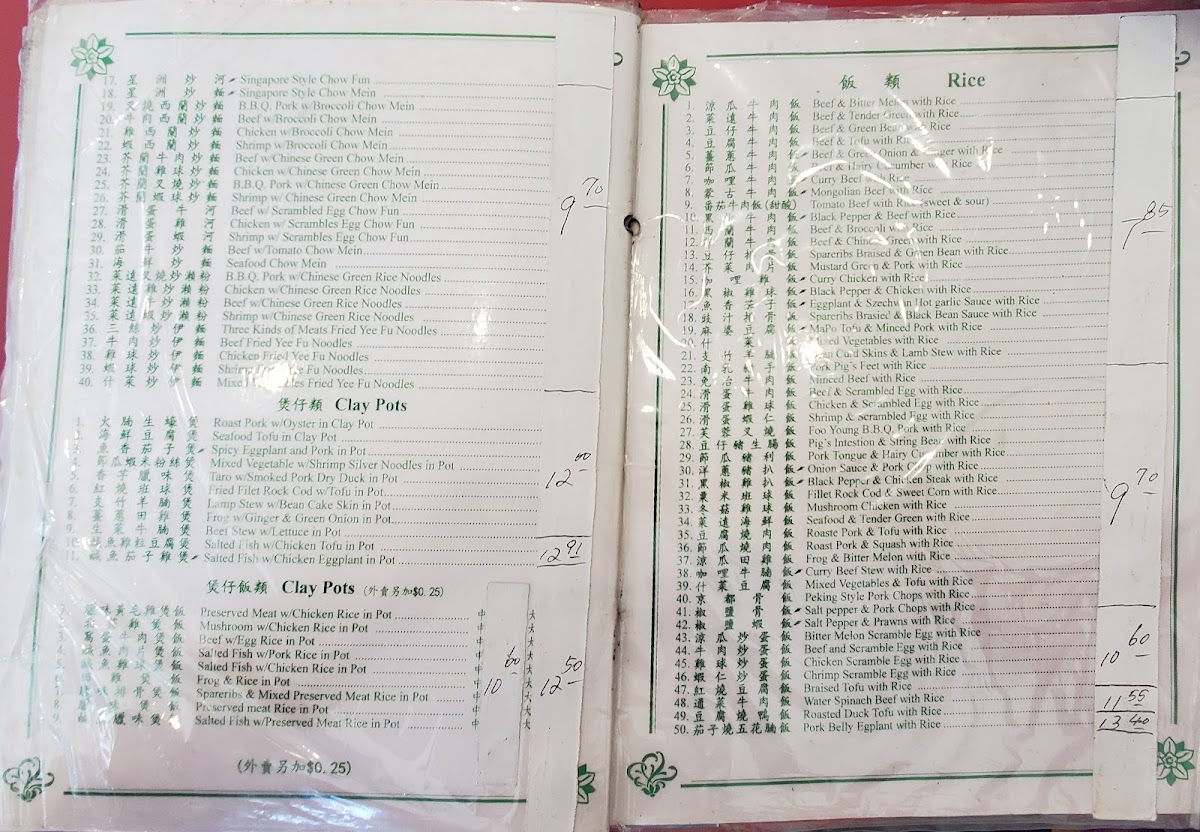 17. 星洲炒河 Singapore Style Chow Fun
18. 星洲炒麵 Singapore Style Chow Mein
19. 叉燒西蘭炒麵 B.B.Q. Pork w/Broccoli Chow Mein
20. 牛肉西蘭炒麵 Beef w/Broccoli Chow Mein
21. 雞西蘭炒麵 Chicken w/Broccoli Chow Mein
22. 蝦西蘭炒麵 Shrimp w/Broccoli Chow Mein
23. 芥蘭牛肉炒麵 Beef w/Chinese Green Chow Mein
24. 芥蘭雞球炒麵 Chicken w/Chinese Green Chow Mein
25. 芥蘭叉燒炒麵 B.B.Q. Pork w/Chinese Green Chow Mein
26. 芥蘭蝦球炒麵 Shrimp w/Chinese Green Chow Mein
27. 滑蛋牛河 Beef w/Scrambled Egg Chow Fun
28. 滑蛋雞河 Chicken w/Scrambles Egg Chow Fun
29. 滑蛋蝦河 Shrimp w/Scrambles Egg Chow Fun
30. 茄牛炒麵 Beef w/Tomato Chow Mein
31. 海鮮炒麵 Seafood Chow Mein
32. 菜遠叉燒炒瀨粉 B.B.Q. Pork w/Chinese Green Rice Noodles
33. 菜遠雞炒瀨粉 Chicken w/Chinese Green Rice Noodles
34. 菜遠牛炒瀨粉 Beef w/Chinese Green Rice Noodles
35. 菜遠蝦炒瀨粉 Shrimp w/Chinese Green Rice Noodles
36. 三絲炒伊麵 Three Kinds of Meats Fried Yee Fu Noodles
37. 牛肉炒伊麵 Beef Fried Yee Fu Noodles
38. 雞球炒伊麵 Chicken Fried Yee Fu Noodles
39. 蝦球炒伊麵 Shrimp Fried Yee Fu Noodles
40. 什菜炒伊麵 Fried Yee Fu Noodles
9 70
煲仔類 Clay Pots
1. 火腩生蠔煲 Roast Pork w/Oyster in Clay Pot
2. 海鮮豆腐煲 Seafood Tofu in Clay Pot
3. 魚香茄子煲 Spicy Eggplant and Pork in Pot
4. 節瓜蝦米粉絲煲 Mixed Vegetable w/Shrimp Silver Noodles in Pot
5. 香芋臘味煲 Taro w/Smoked Pork Dry Duck in Pot
6. 紅燒班球煲 Fried Filet Rock Cod w/Tofu in Pot
7. 支竹羊腩煲 Lamp Stew w/Bean Cake Skin in Pot
8. 薑蔥田雞煲 Frog w/Ginger & Green Onion in Pot
9. 生菜牛腩煲 Beef Stew w/Lettuce in Pot
10. 鹹魚雞粒豆腐煲 Salted Fish w/Chicken Tofu in Pot
11. 鹹魚茄子雞煲 Salted Fish w/Chicken Eggplant in Pot
12 00
12 91
煲仔飯類 Clay Pots (外賣另加$0.25)
臘味黃毛雞煲飯 Preserved Meat w/Chicken Rice in Pot 中 大
雞煲飯 Mushroom w/Chicken Rice in Pot 中 大
3. 窩蛋牛肉煲飯 Beef w/Egg Rice in Pot 中 大
4. 鹹魚肉片煲飯 Salted Fish w/Pork Rice in Pot 中 大
鹹魚雞煲飯 Salted Fish w/Chicken Rice in Pot 中 大
田雞煲飯 Frog & Rice in Pot 中 大
味排骨煲飯 Spareribs & Mixed Preserved Meat Rice in Pot 中 大
味煲飯 Preserved meat Rice in Pot 中 大
臘味煲飯 Salted Fish w/Preserved Meat Rice in Pot 中 大
10 60
12 50
(外賣另加$0.25)
飯類 Rice
1. 涼瓜牛肉飯 Beef & Bitter Melon with Rice
2. 菜遠牛肉飯 Beef & Tender Green with Rice
3. 豆仔牛肉飯 Beef & Green Bean with Rice
4. 豆腐牛肉飯 Beef & Tofu with Rice
5. 薑蔥牛肉飯 Beef & Green Onion & Ginger with Rice
6. 節瓜牛肉飯 Beef & Hairy Cucumber with Rice
7. 咖哩牛肉飯 Curry Beef with Rice
8. 蒙古牛肉飯 Mongolian Beef with Rice
9. 番茄牛肉飯(甜酸) Tomato Beef with Rice (sweet & sour)
10. 黑椒牛肉飯 Black Pepper & Beef with Rice
11. 西蘭牛肉飯 Beef & Broccoli with Rice
12. 芥蘭牛肉飯 Beef & Chinese Green with Rice
13. 豆仔排骨飯 Spareribs Braised & Green Bean with Rice
14. 芥菜肉片飯 Mustard Green & Pork with Rice
15. 咖哩雞飯 Curry Chicken with Rice
16. 黑椒雞球飯 Black Pepper & Chicken with Rice
17. 魚香茄子飯 Eggplant & Szechwan Hot garlic Sauce with Rice
18. 豉汁排骨飯 Spareribs Brasied & Black Bean Sauce with Rice
19. 麻婆豆腐飯 MaPo Tofu & Minced Pork with Rice
20. 什菜飯 Mixed Vegetables with Rice
21. 支竹羊腩飯 Bean Curd Skins & Lamb Stew with Rice
22. 南乳豬手飯 Pork Pig's Feet with Rice
23. 免治牛肉飯 Minced Beef with Rice
24. 滑蛋牛肉飯 Beef & Scrambled Egg with Rice
25. 滑蛋雞球飯 Chicken & Scrambled Egg with Rice
26. 滑蛋蝦仁飯 Shrimp & Scrambled Egg with Rice
27. 芙蓉叉燒飯 Foo Young B.B.Q. Pork with Rice
28. 豆仔豬生腸飯 Pig's Intestion & String Bean with Rice
29. 節瓜豬利飯 Pork Tongue & Hairy Cucumber with Rice
30. 洋蔥豬扒飯 Onion Sauce & Pork Chop with Rice
31. 黑椒雞扒飯 Black Pepper & Chicken Steak with Rice
32. 粟米班球飯 Fillet Rock Cod & Sweet Corn with Rice
33. 冬菇雞球飯 Mushroom Chicken with Rice
34. 菜遠海鮮飯 Seafood & Tender Green with Rice
35. 豆腐燒肉飯 Roaste Pork & Tofu with Rice
36. 節瓜燒肉飯 Roast Pork & Squash with Rice
37. 涼瓜田雞飯 Frog & Bitter Melon with Rice
38. 咖哩牛腩飯 Curry Beef Stew with Rice
39. 什菜豆腐飯 Mixed Vegetables & Tofu with Rice
40. 京都骨飯 Peking Style Pork Chops with Rice
41. 椒鹽骨飯 Salt pepper & Pork Chops with Rice
42. 椒鹽蝦飯 Salt Pepper & Prawns with Rice
43. 涼瓜炒蛋飯 Bitter Melon Scramble Egg with Rice
44. 牛肉炒蛋飯 Beef and Scramble Egg with Rice
45. 雞球炒蛋飯 Chicken Scramble Egg with Rice
46. 蝦仁炒蛋飯 Chrimp Scramble Egg with Rice
47. 紅燒豆腐飯 Braised Tofu with Rice
48. 通菜牛肉飯 Water Spinach Beef with Rice
49. 豆腐燒鴨飯 Roasted Duck Tofu with Rice
50. 茄子燒五花腩飯 Pork Belly Egplant with Rice
85
9 70
10 60
11 55
13 40